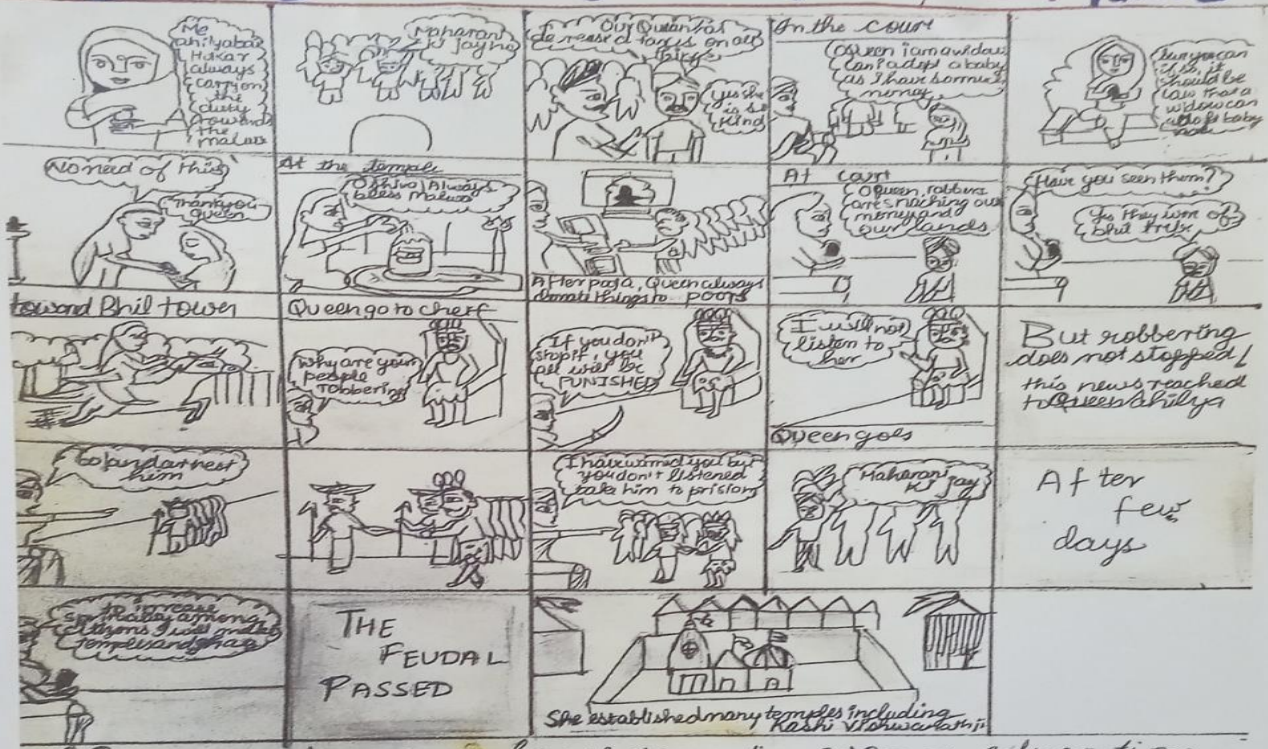 Me
ahilyabai
Holkar
always
carry on
the
duty
towards
the
malwa
Maharani
ki jay ho
Our Queen has
decreased taxes on all
Yes she
is so
kind
In the court
O Queen i am a widow
can I adopt a baby
as I have some
money
you can
it
should be
law that a
widow can
adopt baby
No need of this
Thank you
queen
At the temple
O Shiva! Always
bless malwa
After poja, Queen always
donate things to poors
At court
O Queen, robbers
are snaching our
money and
our lands
Have you seen them?
Yes they were of
bhil tribe
toward Bhil tower
Queen go to cheif
Why are your
people
robbering
If you don't
stop it, you
all will be
PUNISHED
I will not
listen to
her
Queen goes
But robbering
does not stopped /
this news reached
to Queen ahilya
Go and arrest
him
I have warned you but
you don't listened
take him to prision
Maharani
ki jay
After
few
days
to increase
among
citizens I will make
temples and ghats
THE
FEUDAL
PASSED
She established many temples including
Kashi Vishwanathji